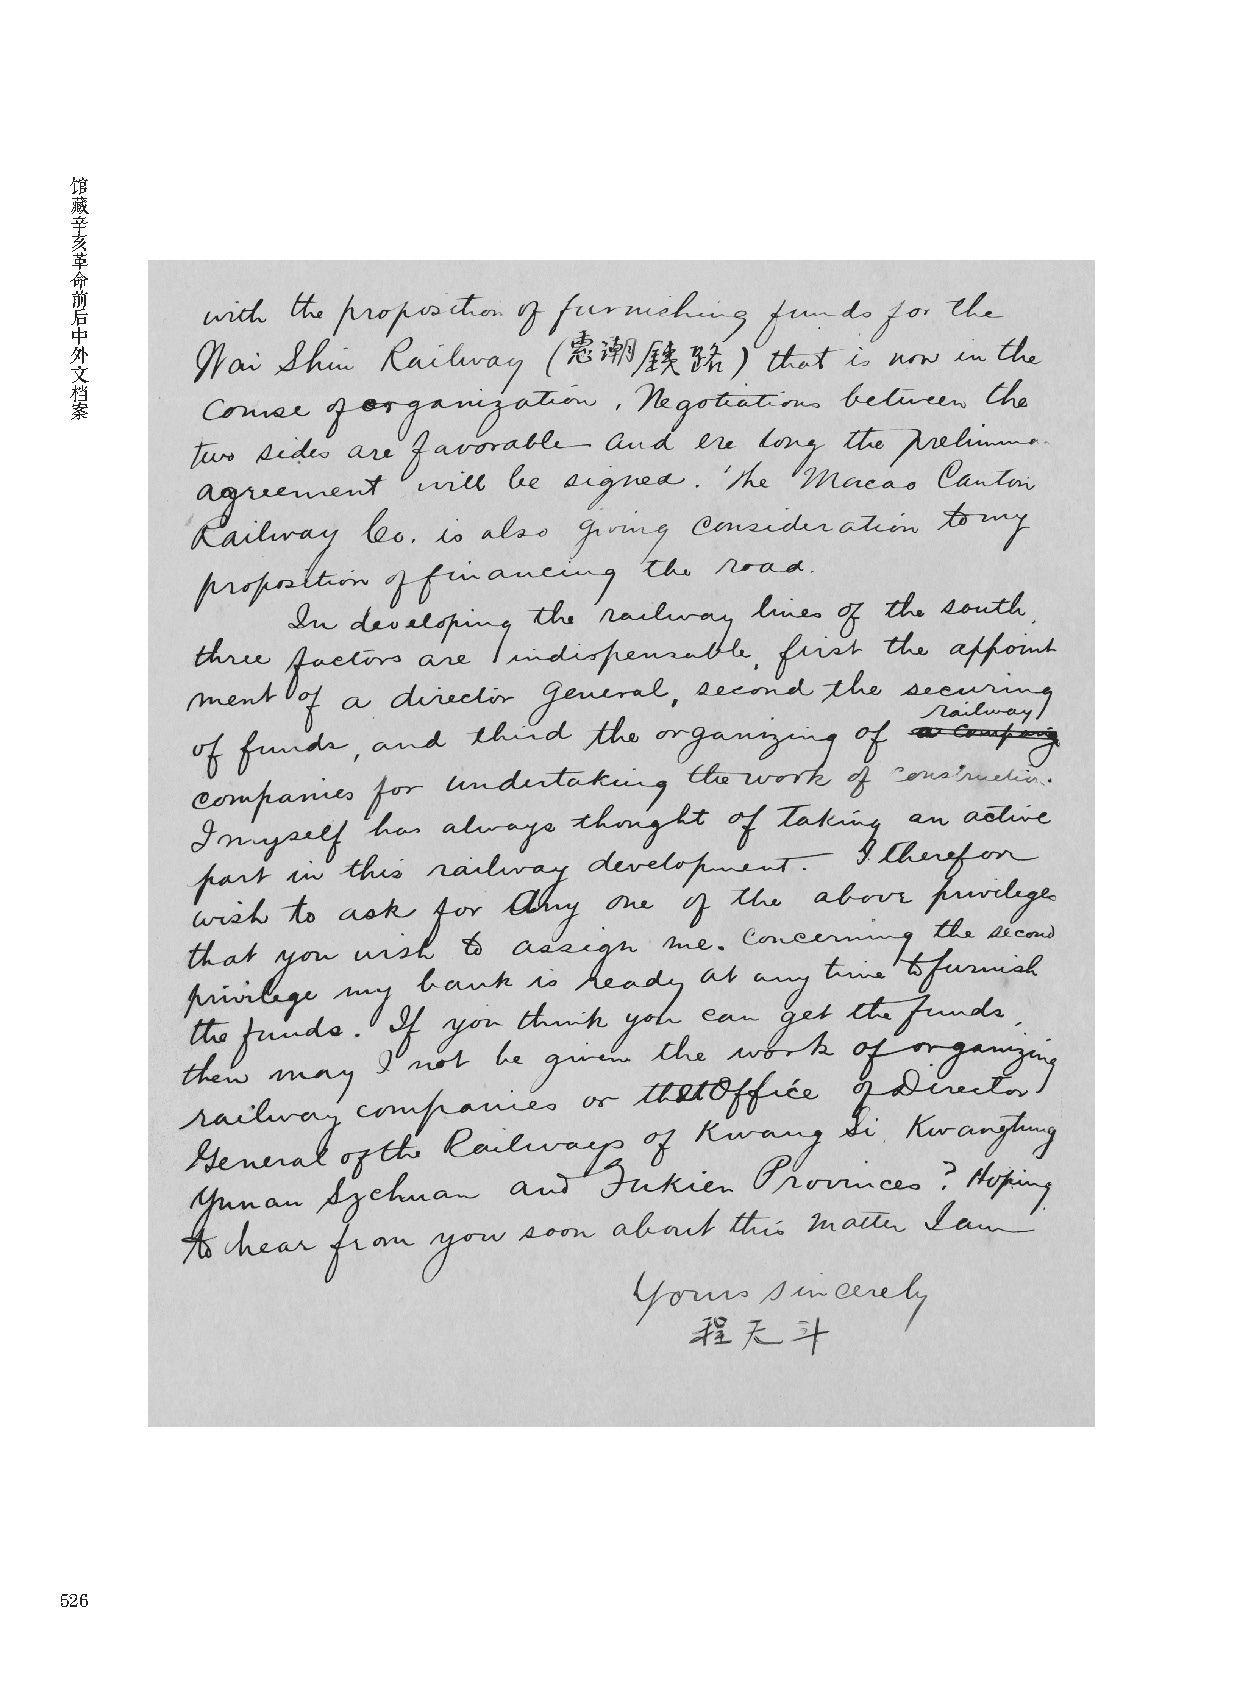 馆藏辛亥革命前后中外文档案
with the proposition of furnishing funds for the
Wai Shiu Railway (惠潮鐵路) that is now in the
course of organization. Negotiations between the
two sides are favorable and ere long the prelimina
agreement will be signed. The Macao Canton
Railway Co. is also giving consideration to my
proposition of financing the road.
In developing the railway lines of the south,
three factors are indispensable, first the appoint
ment of a director general, second the securing
railway
of funds, and third the organizing of a company
companies for undertaking the work of construction.
I myself has always thought of taking an active
part in this railway development. I therefore
wish to ask for any one of the above privileges
that you wish to assign me. Concerning the second
privilege my bank is ready at any time to furnish
the funds. If you think you can get the funds,
then may I not be given the work of organizing
railway companies or the Office of Director
General of the Railways of Kwang Si, Kwangtung
Yunan Szchuan and Fukien Provinces? Hoping
to hear from you soon about this matter I am
Yours sincerely
程天斗
526